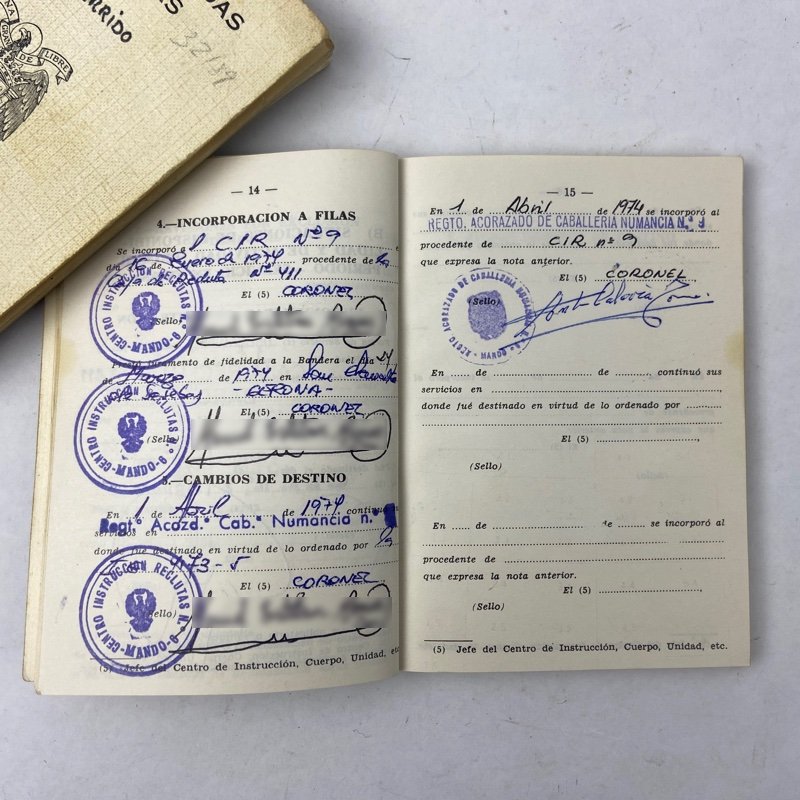 UNA GRANDE LIBRE
RRIDO
32139
— 14 —
4.—INCORPORACION A FILAS
Se incorporó a l CIR Nº 9
día 16 de Enero de 1974 procedente de la
Caja de Recluta Nº 411
El (5) CORONEL
(Sello)
CENTRO INSTRUCCION RECLUTAS N.º
-MANDO-
Prestó juramento de fidelidad a la Bandera el día 24
de Marzo de 1974 en San Clemente
de Sasebas -GERONA-
El (5) CORONEL
(Sello)
CENTRO INSTRUCCION RECLUTAS N.º
-MANDO-
5.—CAMBIOS DE DESTINO
En 1 de Abril de 1974 continuó
Regt.º Acozd.º Cab.ª Numancia n.º
servicios en
donde fué destinado en virtud de lo ordenado por la
173-5
El (5) CORONEL
(Sello)
CENTRO INSTRUCCION RECLUTAS N.º
-MANDO-
(5) Jefe del Centro de Instrucción, Cuerpo, Unidad, etc.
— 15 —
En 1 de Abril de 1974 se incorporó al
REGTO. ACORAZADO DE CABALLERIA NUMANCIA N.º 9
procedente de CIR nº 9
que expresa la nota anterior.
El (5) CORONEL
(Sello)
REGTO ACORAZADO DE CABALLERIA NUMANCIA
MANDO
En de de continuó sus
servicios en
donde fué destinado en virtud de lo ordenado por
El (5)
(Sello)
En de de se incorporó al
procedente de
que expresa la nota anterior.
El (5)
(Sello)
(5) Jefe del Centro de Instrucción, Cuerpo, Unidad, etc.